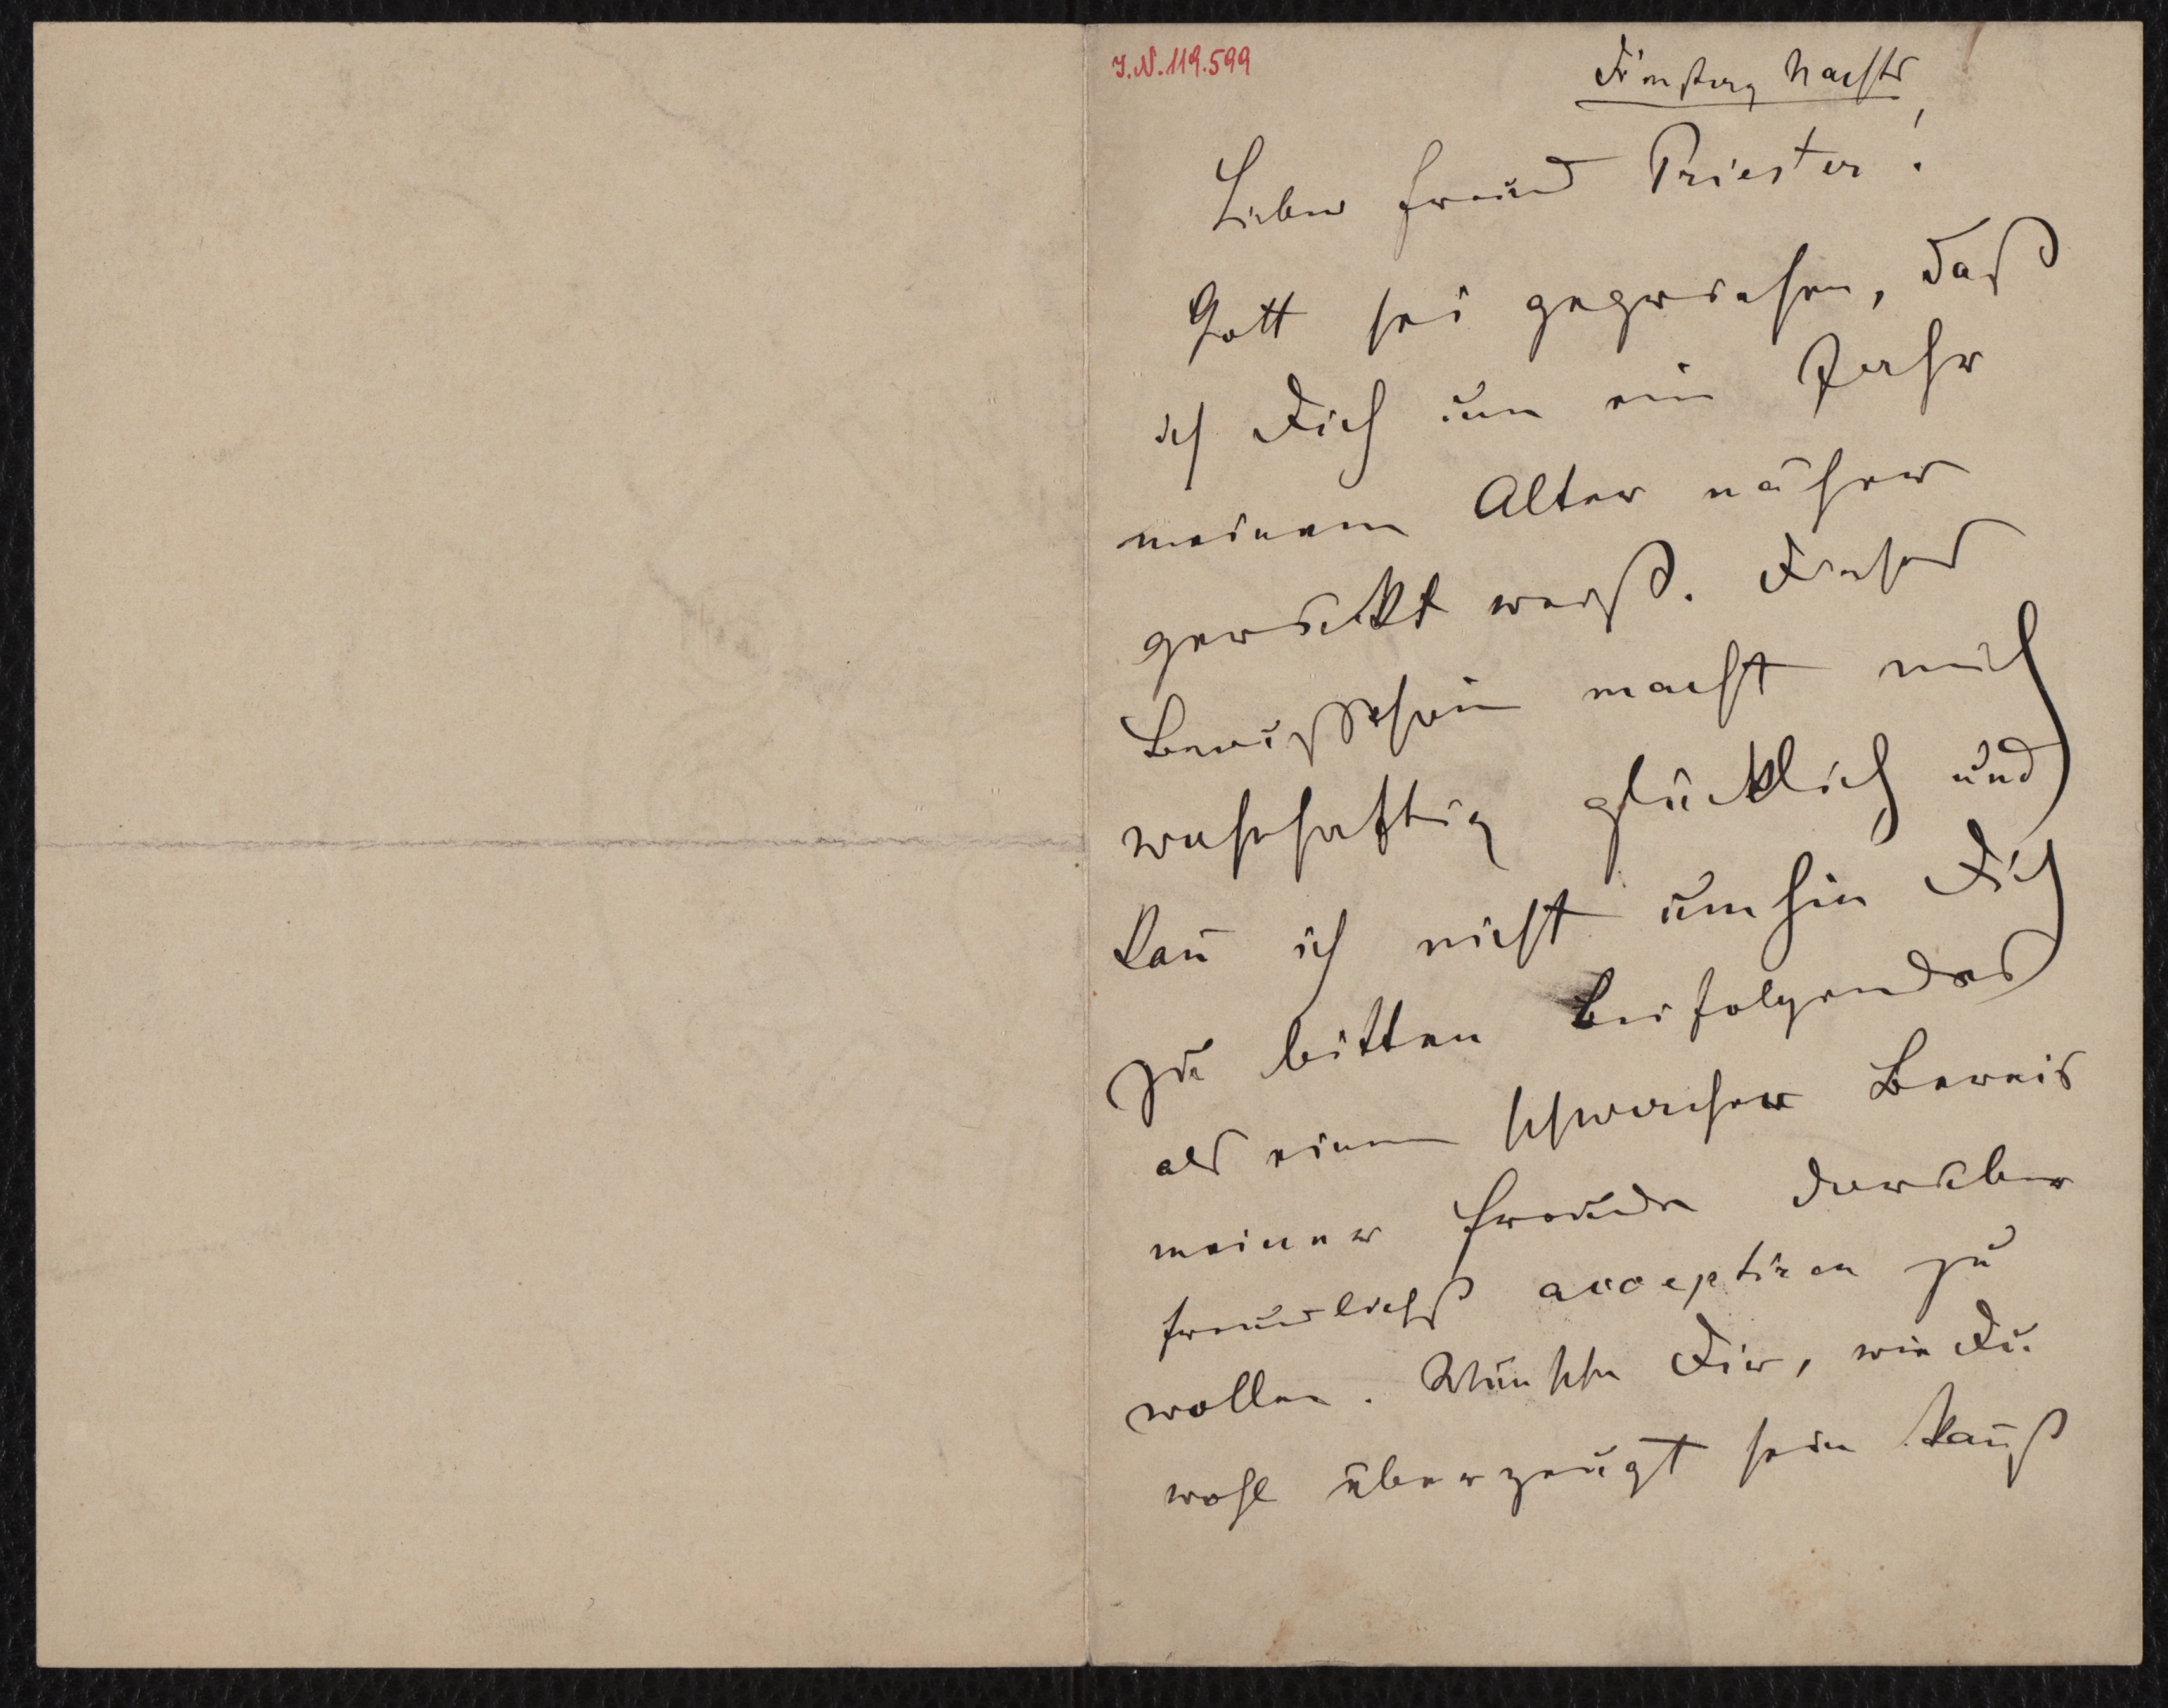 I.N. 119.599
Dienstag Nachts
Lieber Freund Priester!
Gott sei gepriesen, daß
ich Dich um ein Jahr
meinem Alter näher
gerückt weiß. Dieses
Bewußtsein macht mich
wahrhaftig glücklich und
kan̄ ich nicht umhin Dich
zu bitten beifolgendes
als einen schwachen Beweis
meiner Freude darüber
freundlichst acceptiren zu
wollen. Wünsche Dir, wie Du
wohl überzeugt sein kan̄ß